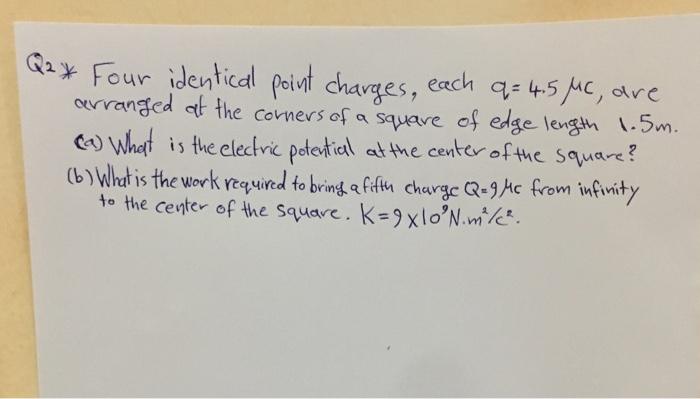 Q2* Four identical point charges, each q = 4.5 μC, are
arranged at the corners of a square of edge length 1.5m.
(a) What is the electric potential at the center of the square?
(b) What is the work required to bring a fifth charge Q=9 μc from infinity
to the center of the square. K=9x10⁹N.m²/c².